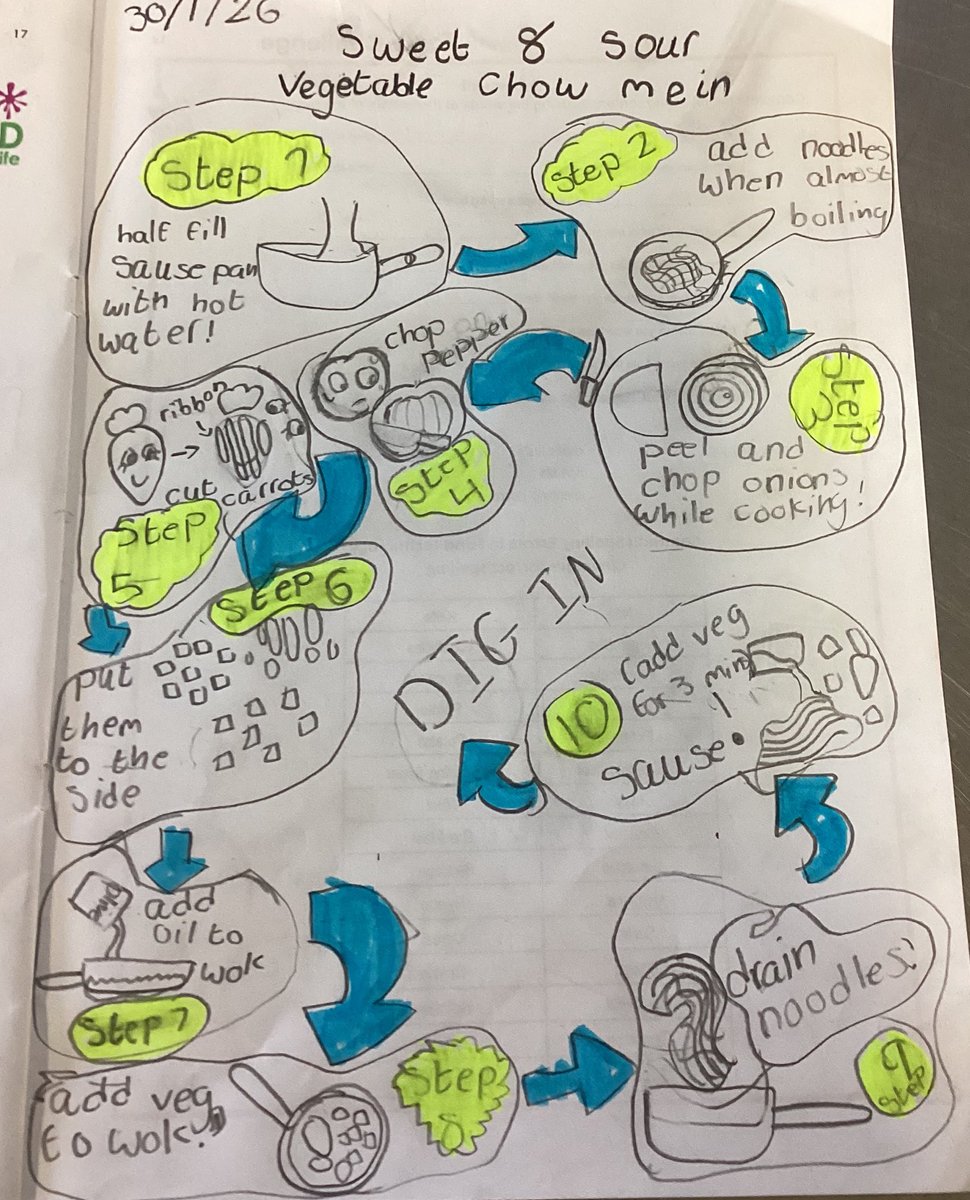 17
D
ife
30/1/26
Sweet & Sour
Vegetable Chow mein
Step 1
half fill
Sause pan
with hot
water!
Step 2
add noodles
when almost
boiling
Step
3
peel and
chop onions,
while cooking!
chop
pepper
Step
4
ribbon
cut carrots
Step
5
Step 6
put
them
to the
side
add
oil to
wok
Step 7
add veg
to wok!
Step
8
drain
noodles!
9
Step
10
(add veg
for 3 min)
sause!
DIG IN